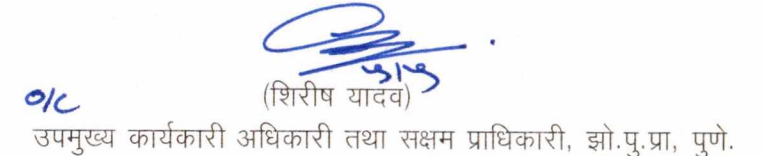 ५/५
o/c (शिरीष यादव)
उपमुख्य कार्यकारी अधिकारी तथा सक्षम प्राधिकारी, झो.पु.प्रा, पुणे.